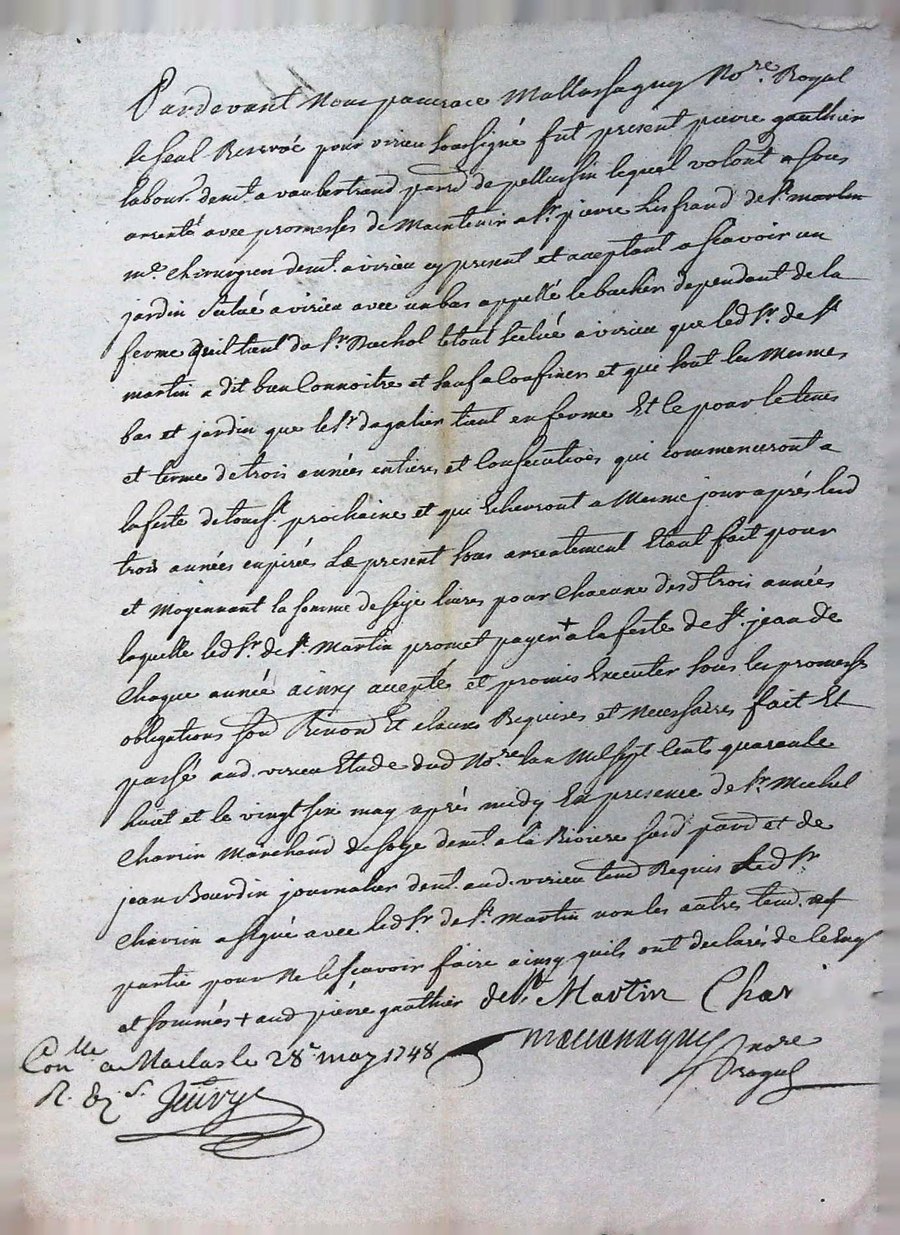 Pardevant Nous pancrace Mallassagny No.re Royal
le seul Reservé pour virieu soussigné fut present pierre gauthier
labour. demt. a vaubertrand parr. de pellussin lequel volont. a sous
arrenté avec promesses de Maintenir a Sr. pierre de St. martin
me. chirurgien demt. a virieu cy present et aceptant a scavoir un
jardin scitué a virieu avec un bas appellé le bacher dependant de la
ferme quil tient du Sr. Duchol le tout scitué a virieu que led Sr. de St.
martin a dit bien Connoitre et sauf a Confiner et qui sont les Mesmes
bas et jardin que le Sr dagalier tient en ferme Et ce pour le tems
et terme de trois années entieres et Consecutives qui commenceront a
la feste de touss.t prochaine et qui Echevront a Mesme jour après lesd
trois années expirés Le present sous arrentement Etant fait pour
et Moyennant la somme de seize livres pour Chacune desd trois années
laquelle led Sr. de St. Martin promet payer + a la feste de St. jean de
Chaque année ainsy accepté et promis Executer sous les promesses
obligations soû Renond Et clauses Requises et Necessaires fait Et
passé aud. virieu Etude dud No.re lan Mil sept Cents quarante
huit et le vingt six may après midy En presence de Sr. Michel
Chavrin Marchand de soye demt. a la Riviere sard parr et de
jean Bourdin journalier demt. aud. virieu temd Requis Led Sr
Chavrin a signé avec led Sr de St. Martin non les autres temd. et
partie pour Ne le scavoir faire ainsy quils ont declarés de ce Enq
et sommés + aud pierre gauthier de St. Martin Chav
mallassagny no.re
royal
Con.lle a Maclas le 28e may 1748
R. Juvry